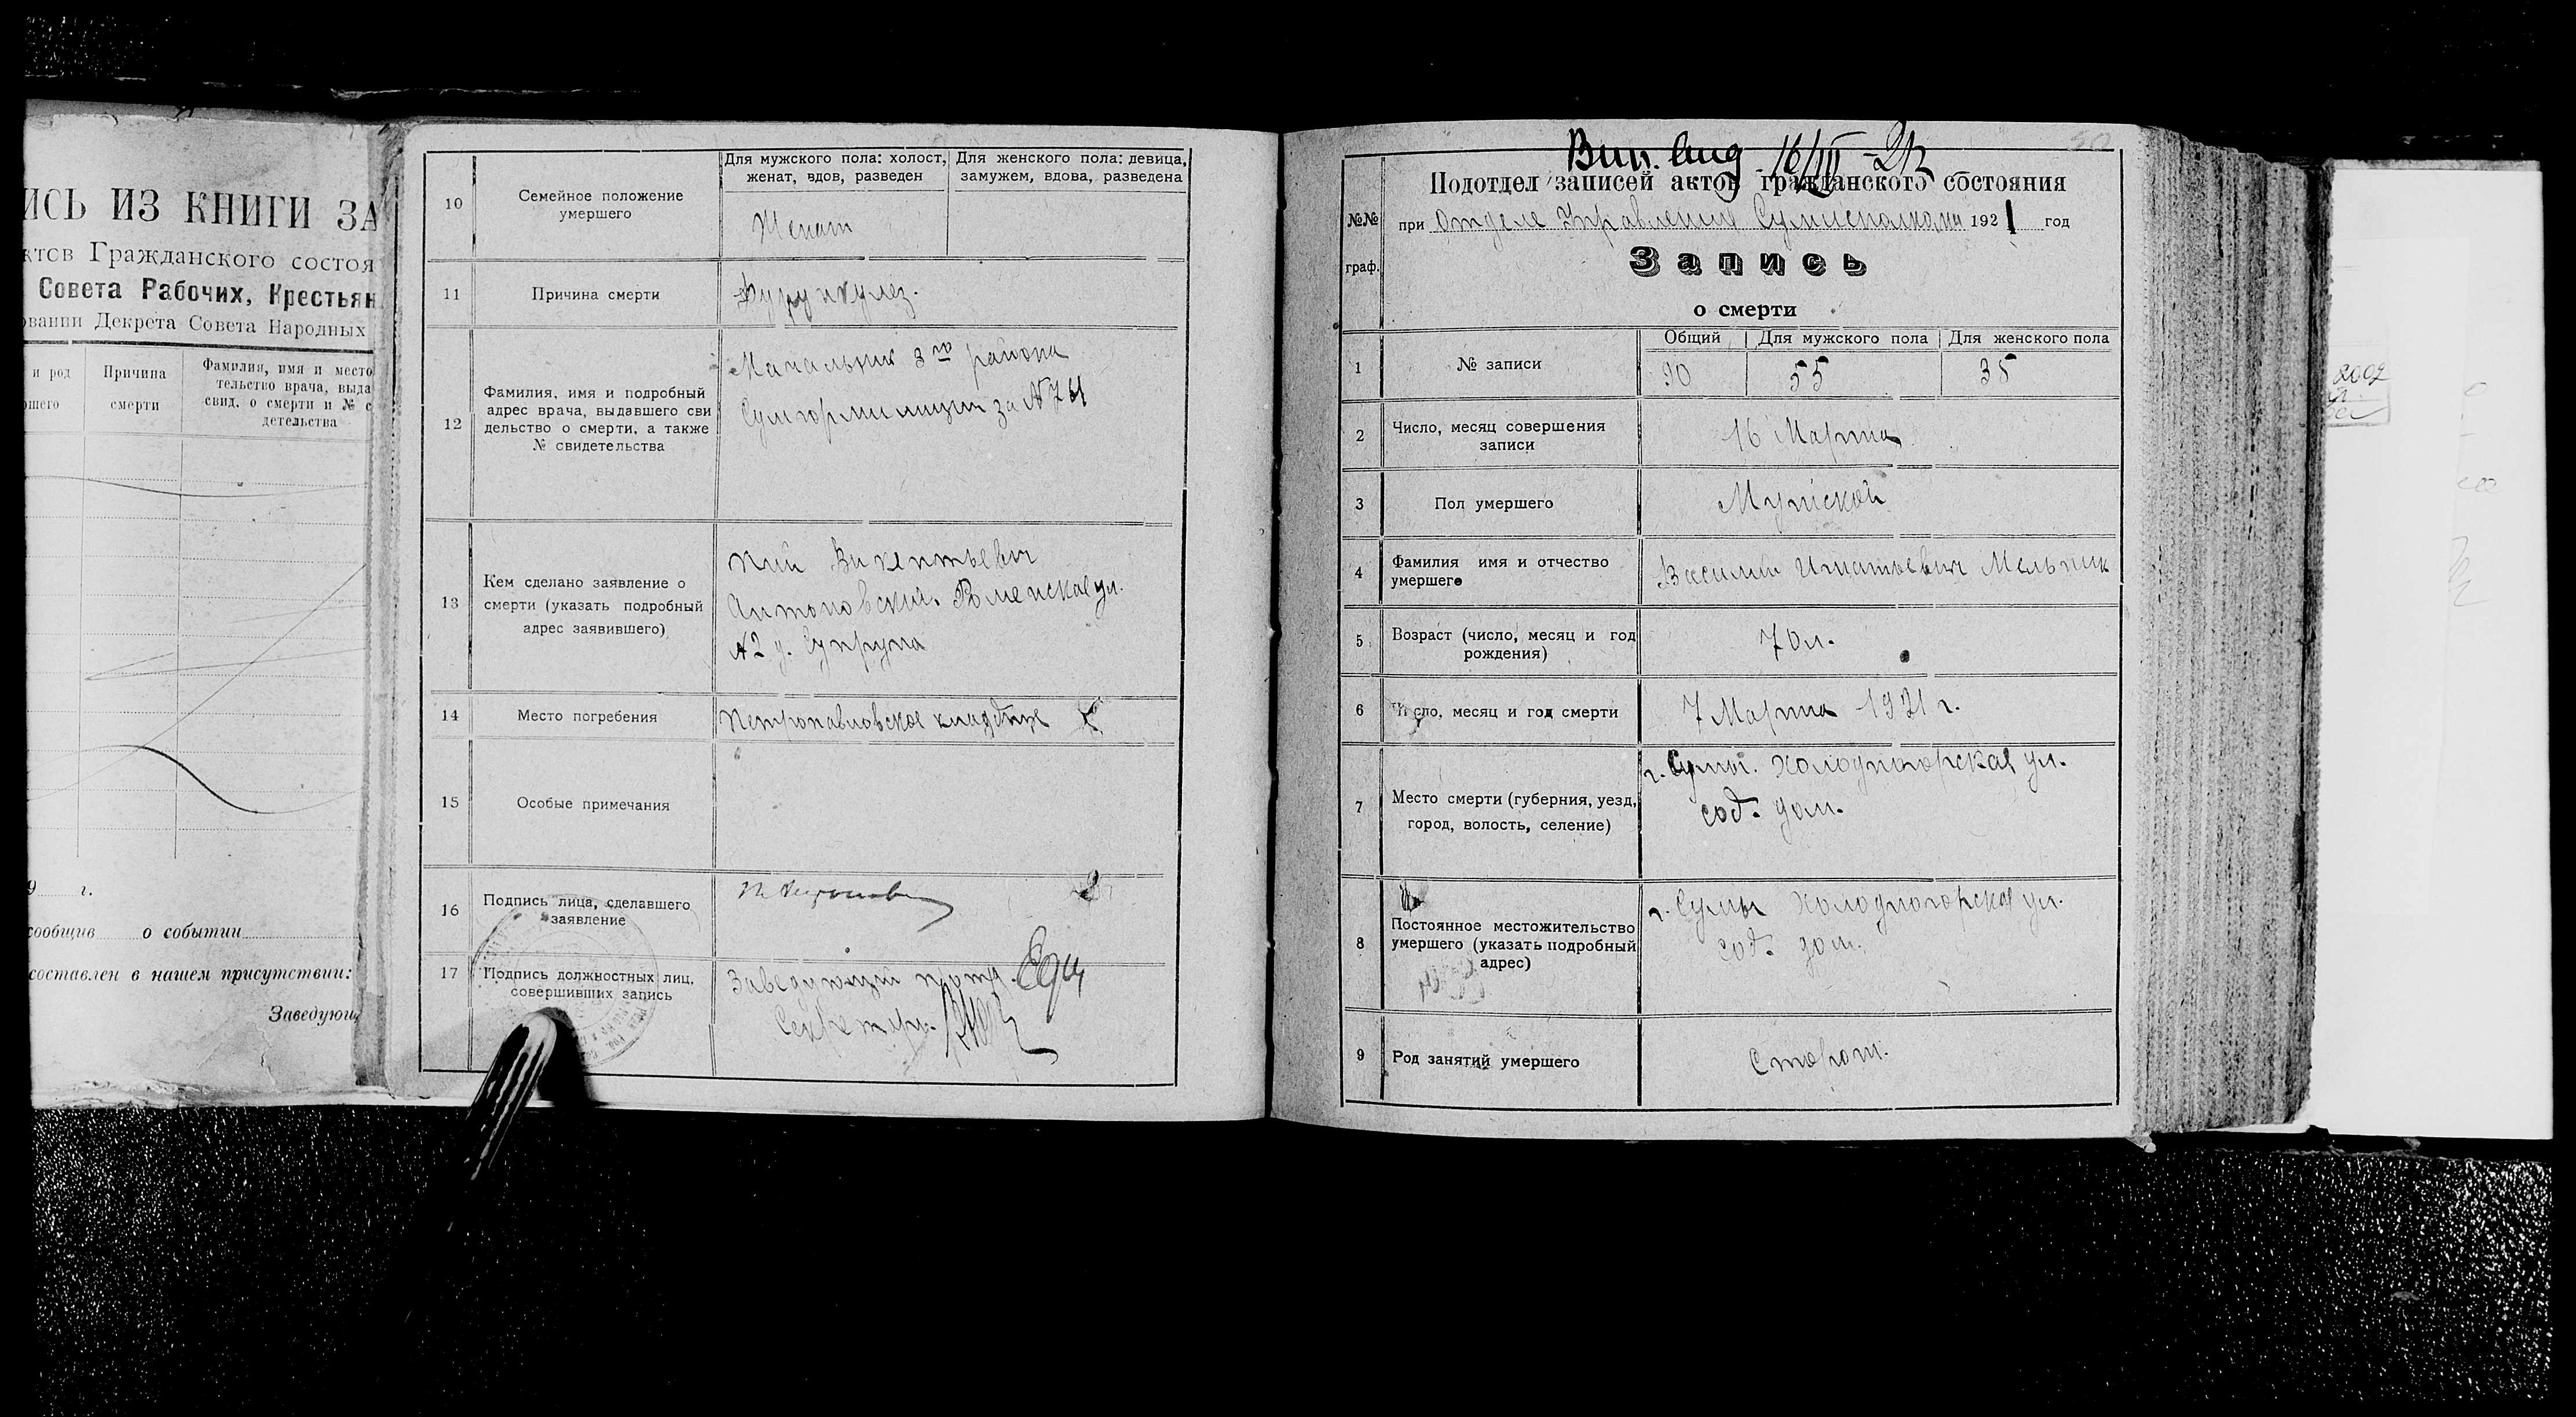 ИСЬ ИЗ КНИГИ ЗА
ктов Гражданского состоя
Совета Рабочих, Крестьян
овании Декрета Совета Народных
и род
ршего
Причина
смерти
Фамилия, имя и место
тельство врача, выда
свид. о смерти и № с
детельства
9 г.
сообщив о событии
составлен в нашем присутствии:
Заведующ
10
Семейное положение
умершего
Для мужского пола: холост,
женат, вдов, разведен
Для женского пола: девица,
замужем, вдова, разведена
Женат
11
Причина смерти
Фурункулез.
12
Фамилия, имя и подробный
адрес врача, выдавшего сви
дельство о смерти, а также
№ свидетельства
Начальник 3го района
Сумгормилиции за №
13
Кем сделано заявление о
смерти (указать подробный
адрес заявившего)
Викентьевич
Антоновский. Роменская ул.
№2 д. Супруна
14
Место погребения
Петропавловское кладбище
15
Особые примечания
16
Подпись лица, сделавшего
заявление
17
Подпись должностных лиц,
совершивших запись
Заведующий
Секретарь.
90
Вып. 16/III-21
№№
граф.
Подотдел записей актов гражданского состояния
при Отделе Управления Сумисполкома 1921 год
Запись
о смерти
1
№ записи
Общий
Для мужского пола
Для женского пола
90
55
35
2
Число, месяц совершения
записи
16 Марта
3
Пол умершего
Мужской
4
Фамилия имя и отчество
умершего
Василий Игнатьевич Мельник
5
Возраст (число, месяц и год
рождения)
70 л.
6
Число, месяц и год смерти
7 Марта 1921 г.
7
Место смерти (губерния, уезд,
город, волость, селение)
г. Сумы. Холодногорская ул.
соб. дом.
8
Постоянное местожительство
умершего (указать подробный
адрес)
г. Сумы Холодногорская ул.
соб. дом.
9
Род занятий умершего
Сторож.
2002